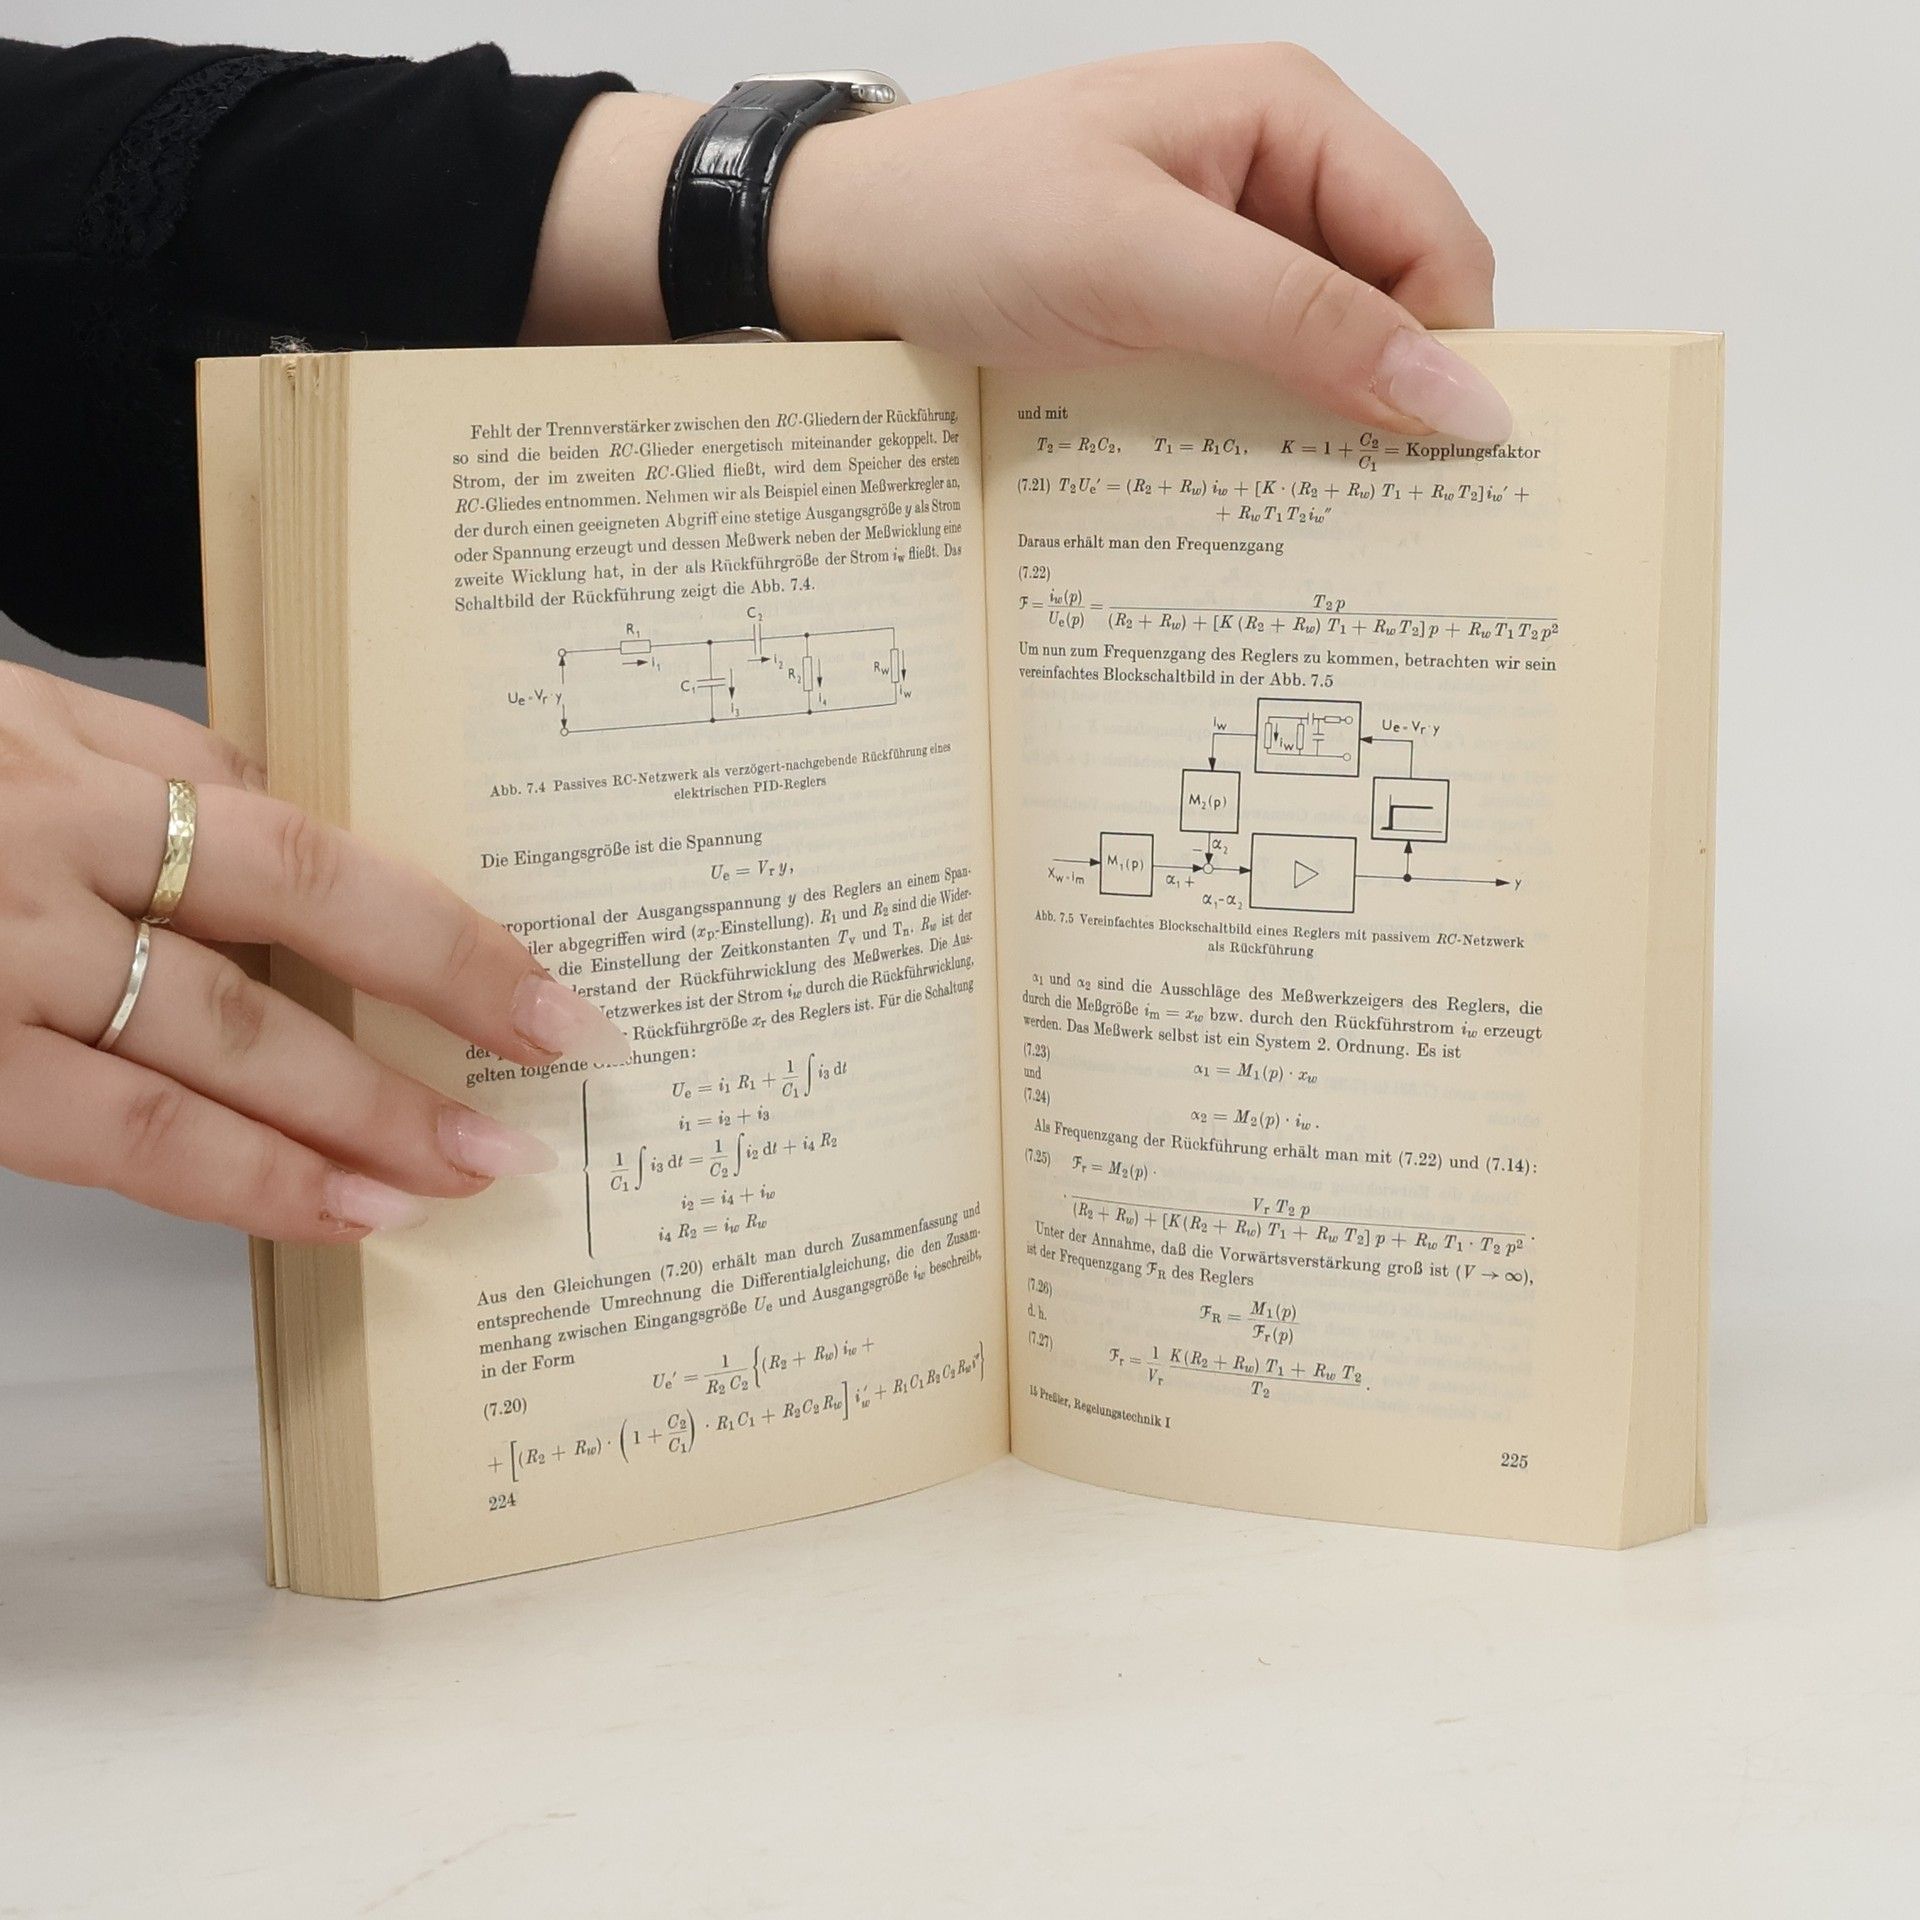 Fehlt der Trennverstärker zwischen den RC-Gliedern der Rückführung,
so sind die beiden RC-Glieder energetisch miteinander gekoppelt. Der
Strom, der im zweiten RC-Glied fließt, wird dem Speicher des ersten
RC-Gliedes entnommen. Nehmen wir als Beispiel einen Meßwerkregler an,
der durch einen geeigneten Abgriff eine stetige Ausgangsgröße y als Strom
oder Spannung erzeugt und dessen Meßwerk neben der Meßwicklung eine
zweite Wicklung hat, in der als Rückführgröße der Strom i_w fließt. Das
Schaltbild der Rückführung zeigt die Abb. 7.4.
C₂
R₁
i₁
i₂
R₂
R_w
C₁
Ue=Vr·y
i₃
i₄
i_w
Abb. 7.4 Passives RC-Netzwerk als verzögert-nachgebende Rückführung eines
elektrischen PID-Reglers
Die Eingangsgröße ist die Spannung
U_e = V_r y,
roportional der Ausgangsspannung y des Reglers an einem Span-
iler abgegriffen wird (x_p-Einstellung). R₁ und R₂ sind die Wider-
die Einstellung der Zeitkonstanten T_v und T_n. R_w ist der
derstand der Rückführwicklung des Meßwerkes. Die Aus-
Netzwerkes ist der Strom i_w durch die Rückführwicklung,
Rückführgröße x_r des Reglers ist. Für die Schaltung
gelten folgende
U_e = i₁ R₁ + 1/C₁ ∫ i₃ dt
i₁ = i₂ + i₃
1/C₁ ∫ i₃ dt = 1/C₂ ∫ i₂ dt + i₄ R₂
i₂ = i₄ + i_w
i₄ R₂ = i_w R_w
Aus den Gleichungen (7.20) erhält man durch Zusammenfassung und
entsprechende Umrechnung die Differentialgleichung, die den Zusam-
menhang zwischen Eingangsgröße U_e und Ausgangsgröße i_w beschreibt,
in der Form
U_e′ = 1/(R₂ C₂) {(R₂ + R_w) i_w +
(7.20)
+ [(R₂ + R_w) · (1 + C₂/C₁) · R₁C₁ + R₂C₂R_w] i_w′ + R₁C₁R₂C₂R_w i″}
224
und mit
T₂ = R₂C₂, T₁ = R₁C₁, K = 1 + C₂/C₁ = Kopplungsfaktor
(7.21) T₂U_e′ = (R₂ + R_w) i_w + [K · (R₂ + R_w) T₁ + R_w T₂] i_w′ +
+ R_w T₁ T₂ i_w″
Daraus erhält man den Frequenzgang
(7.22)
ℱ = i_w(p)/U_e(p) = T₂ p/((R₂ + R_w) + [K (R₂ + R_w) T₁ + R_w T₂] p + R_w T₁ T₂ p²)
Um nun zum Frequenzgang des Reglers zu kommen, betrachten wir sein
vereinfachtes Blockschaltbild in der Abb. 7.5
i_w
i_w
Ue=Vr·y
M₂(p)
− α₂
M₁(p)
x_w=i_m
α₁ +
α₁-α₂
y
Abb. 7.5 Vereinfachtes Blockschaltbild eines Reglers mit passivem RC-Netzwerk
als Rückführung
α₁ und α₂ sind die Ausschläge des Meßwerkzeigers des Reglers, die
durch die Meßgröße i_m = x_w bzw. durch den Rückführstrom i_w erzeugt
werden. Das Meßwerk selbst ist ein System 2. Ordnung. Es ist
(7.23)
α₁ = M₁(p) · x_w
und
(7.24)
α₂ = M₂(p) · i_w .
Als Frequenzgang der Rückführung erhält man mit (7.22) und (7.14):
(7.25) ℱ_r = M₂(p) ·
· V_r T₂ p/((R₂ + R_w) + [K(R₂ + R_w) T₁ + R_w T₂] p + R_w T₁ · T₂ p²) .
Unter der Annahme, daß die Vorwärtsverstärkung groß ist (V → ∞),
ist der Frequenzgang ℱ_R des Reglers
(7.26)
ℱ_R = M₁(p)/ℱ_r(p)
d. h.
(7.27)
ℱ_r = 1/V_r K(R₂ + R_w) T₁ + R_w T₂/T₂ .
15 Preßler, Regelungstechnik I
225